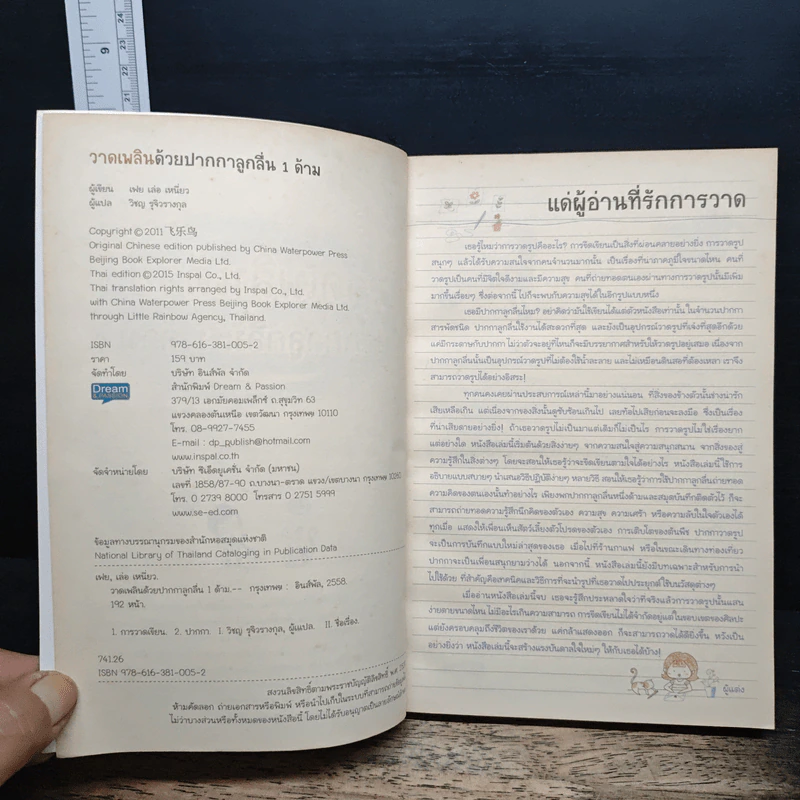 วาดเพลินด้วยปากกาลูกลื่น 1 ด้าม
ผู้เขียน เฟย เล่อ เหนี่ยว
ผู้แปล วิชญ รุจิวรางกุล
Copyright © 2011 飞乐鸟
Original Chinese edition published by China Waterpower Press
Beijing Book Explorer Media Ltd.
Thai edition © 2015 Inspal Co., Ltd.
Thai translation rights arranged by Inspal Co., Ltd.
with China Waterpower Press Beijing Book Explorer Media Ltd.
through Little Rainbow Agency, Thailand.
ISBN 978-616-381-005-2
ราคา 159 บาท
จัดทำโดย บริษัท อินส์พัล จำกัด
Dream & PASSION สำนักพิมพ์ Dream & Passion
379/13 เอกมัยคอมเพล็กซ์ ถ.สุขุมวิท 63
แขวงคลองตันเหนือ เขตวัฒนา กรุงเทพฯ 10110
โทร. 08-9927-7455
E-mail : dp_publish@hotmail.com
www.inspal.co.th
จัดจำหน่ายโดย บริษัท ซีเอ็ดยูเคชั่น จำกัด (มหาชน)
เลขที่ 1858/87-90 ถ.บางนา-ตราด แขวง/เขตบางนา กรุงเทพฯ 10260
โทร. 0 2739 8000 โทรสาร 0 2751 5999
www.se-ed.com
ข้อมูลทางบรรณานุกรมของสำนักหอสมุดแห่งชาติ
National Library of Thailand Cataloging in Publication Data
เฟย, เล่อ เหนี่ยว.
วาดเพลินด้วยปากกาลูกลื่น 1 ด้าม.-- กรุงเทพฯ : อินส์พัล, 2558.
192 หน้า.
1. การวาดเขียน. 2. ปากกา. I. วิชญ รุจิวรางกุล, ผู้แปล. II. ชื่อเรื่อง.
741.26
ISBN 978-616-381-005-2
สงวนลิขสิทธิ์ตามพระราชบัญญัติลิขสิทธิ์ พ.ศ.
ห้ามคัดลอก ถ่ายเอกสารหรือพิมพ์ หรือนำไปเก็บในระบบที่สามารถถ่าย
ไม่ว่าบางส่วนหรือทั้งหมดของหนังสือนี้ โดยไม่ได้รับอนุญาตเป็นลายลักษณ์
แด่ผู้อ่านที่รักการวาด
เธอรู้ไหมว่าการวาดรูปคืออะไร? การขีดเขียนเป็นสิ่งที่ผ่อนคลายอย่างยิ่ง การวาดรูป
สนุกๆ แล้วได้รับความสนใจจากคนจำนวนมากนั้น เป็นเรื่องที่น่าภาคภูมิใจขนาดไหน คนที่
วาดรูปเป็นคนที่มีจิตใจดีงามและมีความสุข คนที่ถ่ายทอดตนเองผ่านทางการวาดรูปนั้นมีเพิ่ม
มากขึ้นเรื่อยๆ ซึ่งต่อจากนี้ ไปก็จะพบกับความสุขได้ในอีกรูปแบบหนึ่ง
เธอมีปากกาลูกลื่นไหม? อย่าคิดว่ามันใช้เขียนได้แต่ตัวหนังสือเท่านั้น ในจำนวนปากกา
สารพัดชนิด ปากกาลูกลื่นใช้งานได้สะดวกที่สุด และยังเป็นอุปกรณ์วาดรูปที่เจ๋งที่สุดอีกด้วย
แค่มีกระดาษกับปากกา ไม่ว่าตัวจะอยู่ที่ไหนก็จะมีบรรยากาศสำหรับให้วาดรูปอยู่เสมอ เนื่องจาก
ปากกาลูกลื่นนั้นเป็นอุปกรณ์วาดรูปที่ไม่ต้องใช้น้ำละลาย และไม่เหมือนดินสอที่ต้องเหลา เราจึง
สามารถวาดรูปได้อย่างอิสระ!
ทุกคนคงเคยผ่านประสบการณ์เหล่านี้มาอย่างแน่นอน ที่สิ่งของข้างตัวนั้นช่างน่ารัก
เสียเหลือเกิน แต่เนื่องจากของสิ่งนั้นดูซับซ้อนเกินไป เลยท้อไปเสียก่อนจะลงมือ ซึ่งเป็นเรื่อง
ที่น่าเสียดายอย่างยิ่ง! ถ้าเธอวาดรูปไม่เป็นมาแต่เดิมก็ไม่เป็นไร การวาดรูปไม่ใช่เรื่องยาก
แต่อย่างใด หนังสือเล่มนี้เริ่มต้นด้วยสิ่งง่ายๆ จากความสนใจสู่ความสนุกสนาน จากสิ่งของสู่
ความรู้สึกในสิ่งต่างๆ โดยจะสอนให้เธอรู้ว่าจะขีดเขียนตามใจได้อย่างไร หนังสือเล่มนี้ใช้การ
อธิบายแบบสบายๆ นำเสนอวิธีปฏิบัติง่ายๆ หลายวิธี สอนให้เธอรู้ว่าการใช้ปากกาลูกลื่นถ่ายทอด
ความคิดของตนเองนั้นทำอย่างไร เพียงพกปากกาลูกลื่นหนึ่งด้ามและสมุดบันทึกติดตัวไว้ ก็จะ
สามารถถ่ายทอดความรู้สึกนึกคิดของตัวเอง ความสุข ความเศร้า หรือความลับในใจตัวเองได้
ทุกเมื่อ แสดงให้เพื่อนเห็นสัตว์เลี้ยงตัวโปรดของตัวเอง การเติบโตของต้นพืช ปากกาวาดรูป
จะเป็นการบันทึกแบบใหม่ล่าสุดของเธอ เมื่อไปที่ร้านกาแฟ หรือในขณะเดินทางท่องเที่ยว
ปากกาจะเป็นเพื่อนสนุกยามว่างได้ นอกจากนี้ หนังสือเล่มนี้ยังมีบทเฉพาะสำหรับการนำ
ไปใช้ด้วย ที่สำคัญคือเทคนิคและวิธีการที่จะนำรูปที่เธอวาดไปประยุกต์ใช้บนวัสดุต่างๆ
เมื่ออ่านหนังสือเล่มนี้จบ เธอจะรู้สึกประหลาดใจว่าที่จริงแล้วการวาดรูปนั้นแสน
ง่ายดายขนาดไหน ไม่มีอะไรเกินความสามารถ การขีดเขียนไม่ได้จำกัดอยู่แต่ในขอบเขตของศิลปะ
แต่ยังครอบคลุมถึงชีวิตของเราด้วย แค่กล้าแสดงออก ก็จะสามารถวาดได้ดียิ่งขึ้น หวังเป็น
อย่างยิ่งว่า หนังสือเล่มนี้จะสร้างแรงบันดาลใจใหม่ๆ ให้กับเธอได้บ้าง!
ผู้แต่ง